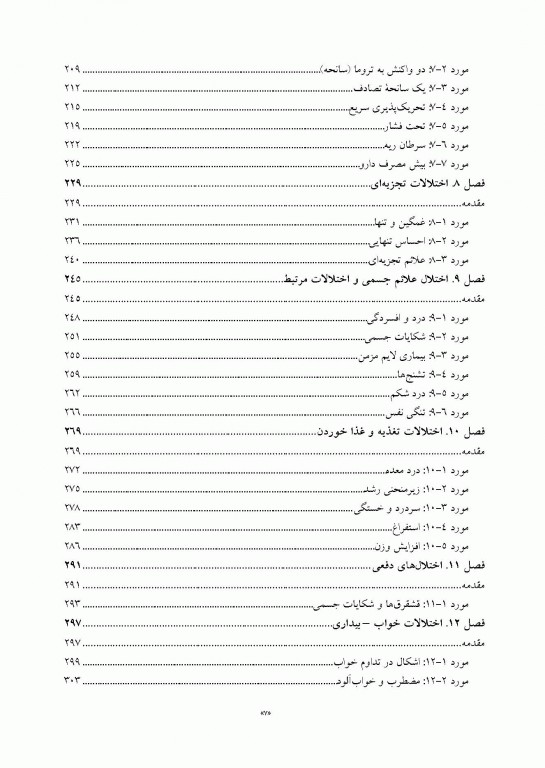 مورد ۲-۷: دو واکنش به تروما (سانحه)........ ۲۰۹
مورد ۳-۷: یک سانحهٔ تصادف........ ۲۱۲
مورد ۴-۷: تحریک‌پذیری سریع........ ۲۱۵
مورد ۵-۷: تحت فشار........ ۲۱۹
مورد ۶-۷: سرطان ریه........ ۲۲۲
مورد ۷-۷: بیش مصرف دارو........ ۲۲۵
فصل ۸. اختلالات تجزیه‌ای........ ۲۲۹
مقدمه........ ۲۲۹
مورد ۱-۸: غمگین و تنها........ ۲۳۱
مورد ۲-۸: احساس تنهایی........ ۲۳۶
مورد ۳-۸: علائم تجزیه‌ای........ ۲۴۰
فصل ۹. اختلال علائم جسمی و اختلالات مرتبط........ ۲۴۵
مقدمه........ ۲۴۵
مورد ۱-۹: درد و افسردگی........ ۲۴۸
مورد ۲-۹: شکایات جسمی........ ۲۵۱
مورد ۳-۹: بیماری لایم مزمن........ ۲۵۵
مورد ۴-۹: تشنج‌ها........ ۲۵۹
مورد ۵-۹: درد شکم........ ۲۶۲
مورد ۶-۹: تنگی نفس........ ۲۶۶
فصل ۱۰. اختلالات تغذیه و غذا خوردن........ ۲۶۹
مقدمه........ ۲۶۹
مورد ۱-۱۰: درد معده........ ۲۷۲
مورد ۲-۱۰: زیرمنحنی رشد........ ۲۷۵
مورد ۳-۱۰: سردرد و خستگی........ ۲۷۸
مورد ۴-۱۰: استفراغ........ ۲۸۳
مورد ۵-۱۰: افزایش وزن........ ۲۸۶
فصل ۱۱. اختلال‌های دفعی........ ۲۹۱
مقدمه........ ۲۹۱
مورد ۱-۱۱: قشقرق‌ها و شکایات جسمی........ ۲۹۳
فصل ۱۲. اختلالات خواب – بیداری........ ۲۹۷
مقدمه........ ۲۹۷
مورد ۱-۱۲: اشکال در تداوم خواب........ ۲۹۹
مورد ۲-۱۲: مضطرب و خواب‌آلود........ ۳۰۳
«۷»